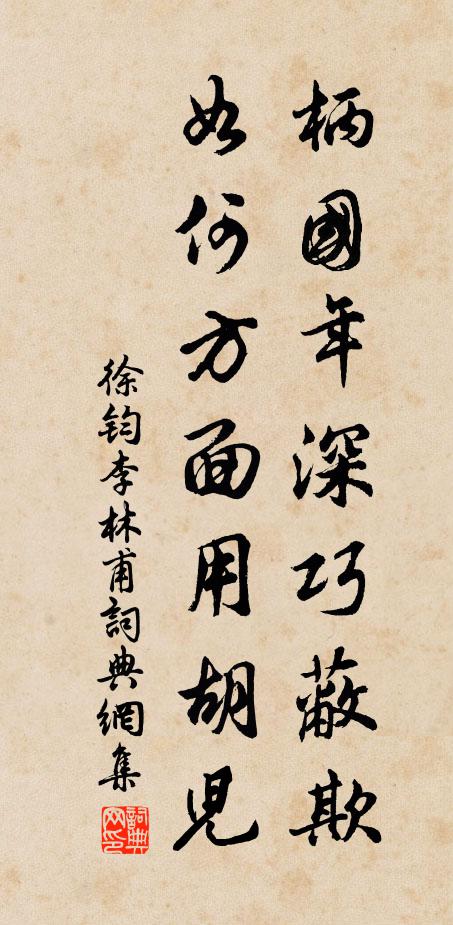 柄國年深巧蔽欺
如何方面用胡兒
徐鈞李林甫詞典網集
詞典网印